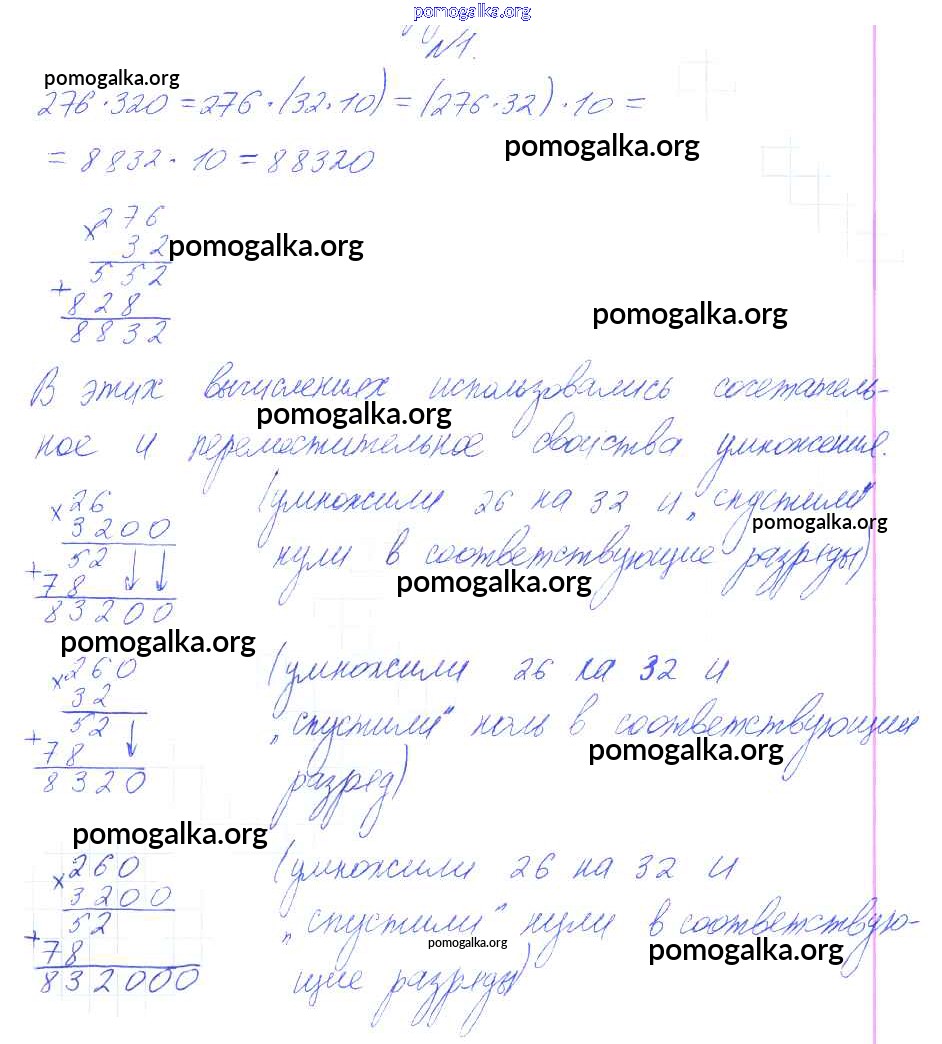 pomogalka.org
№1.
pomogalka.org
276·320 = 276·(32·10) = (276·32)·10 =
pomogalka.org
= 8832·10 = 88320
×276
32
pomogalka.org
552
+
828
8832
pomogalka.org
В этих вычислениях использовались сочетатель-
pomogalka.org
ное и переместительное свойства умножения.
×26
3200
52
+
78
83200
(умножили 26 на 32 и „спустили"
pomogalka.org
нули в соответствующие разряды)
pomogalka.org
pomogalka.org
×260
32
52
+
78
8320
(умножили 26 на 32 и
„спустили" ноль в соответствующий
pomogalka.org
разряд)
pomogalka.org
×260
3200
52
+
78
832000
(умножили 26 на 32 и
„спустили" нули в соответствую-
pomogalka.org
pomogalka.org
щие разряды)